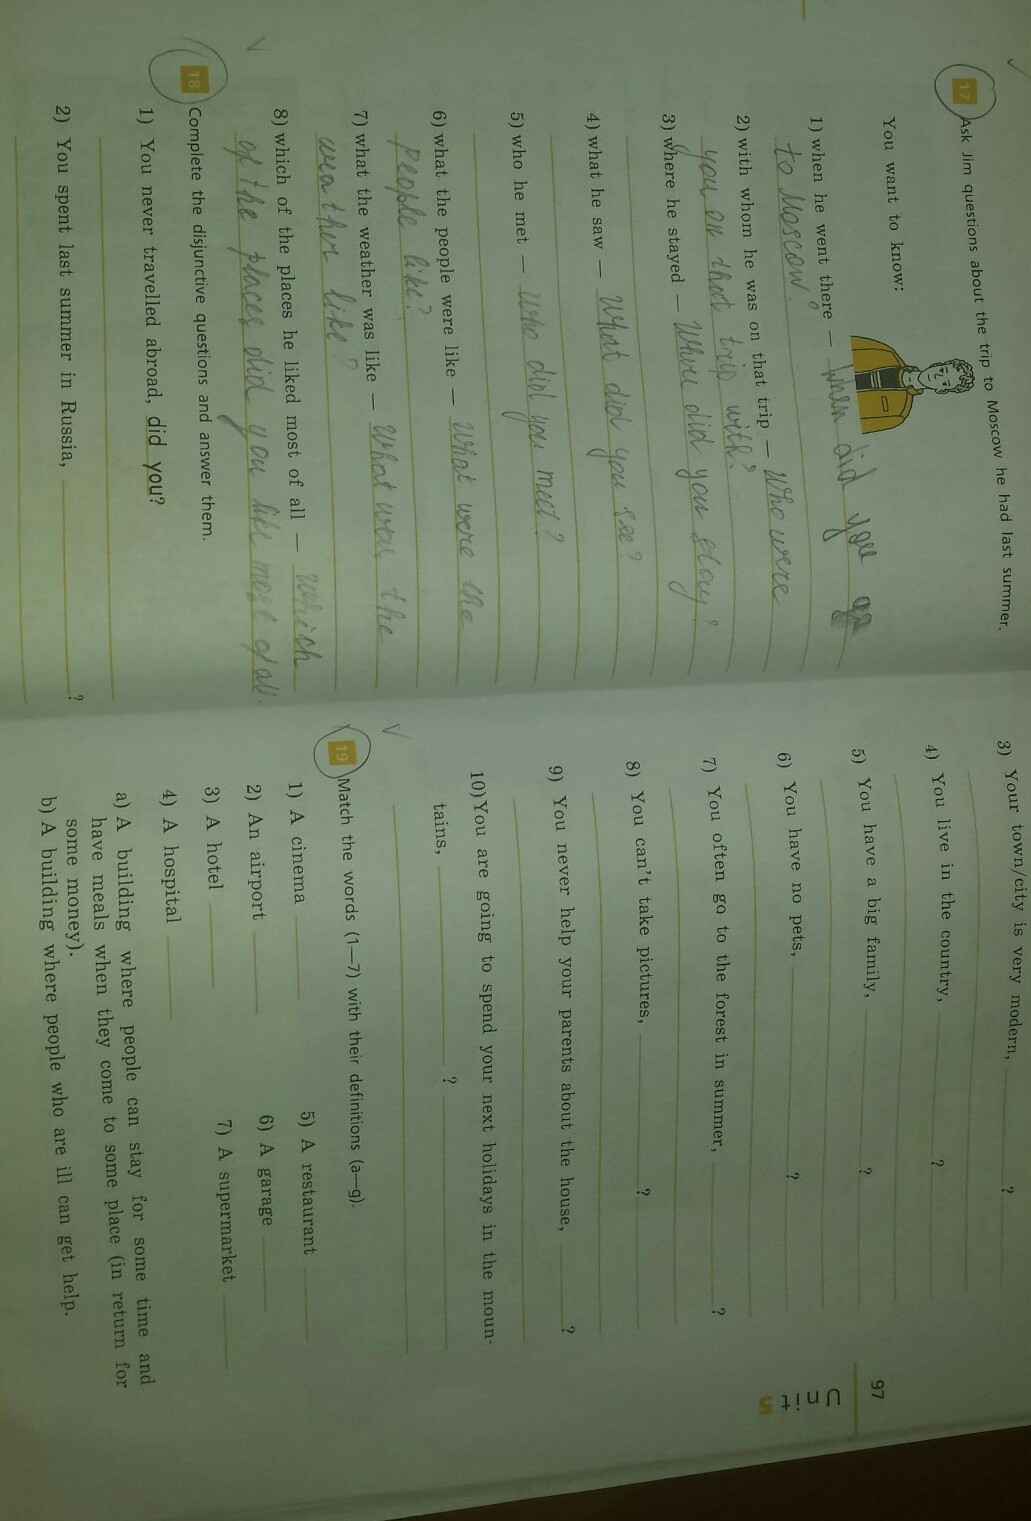 17 Ask Jim questions about the trip to Moscow he had last summer.
You want to know:
1) when he went there — When did you go
to Moscow?
2) with whom he was on that trip — Who were
you on that trip with?
3) where he stayed — Where did you stay?
4) what he saw — What did you see?
5) who he met — Who did you meet?
6) what the people were like — What were the
people like?
7) what the weather was like — What were the
weather like?
8) which of the places he liked most of all — Which
of the places did you like most of all.
18 Complete the disjunctive questions and answer them.
1) You never travelled abroad, did you?
2) You spent last summer in Russia, ?
3) Your town/city is very modern, ?
4) You live in the country, ?
5) You have a big family, ?
6) You have no pets, ?
7) You often go to the forest in summer, ?
8) You can't take pictures, ?
9) You never help your parents about the house, ?
10) You are going to spend your next holidays in the moun-
tains, ?
19 Match the words (1—7) with their definitions (a—g).
1) A cinema
2) An airport
3) A hotel
4) A hospital
5) A restaurant
6) A garage
7) A supermarket
a) A building where people can stay for some time and
have meals when they come to some place (in return for
some money).
b) A building where people who are ill can get help.
97
Unit 5